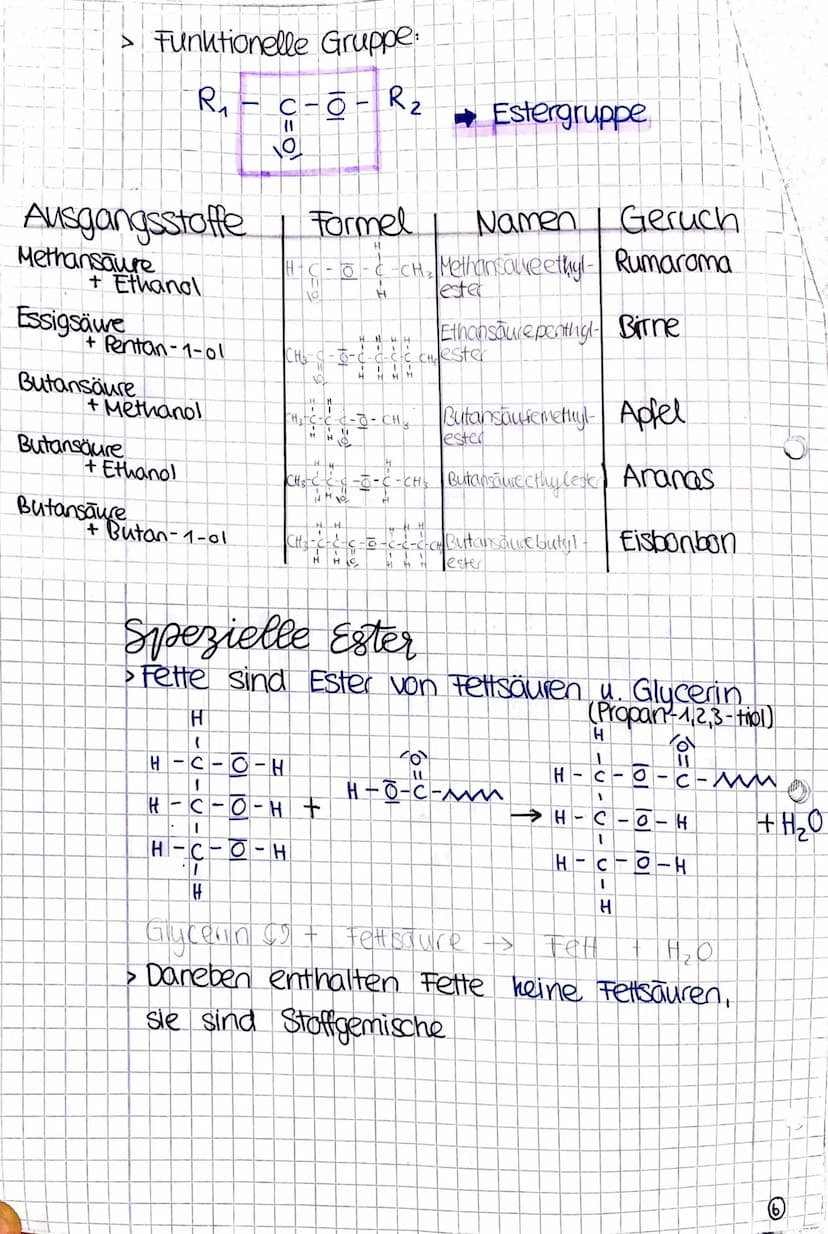 > Funktionelle Gruppe:
R₁ - C - O - R₂ → Estergruppe
||
|O|
Ausgangsstoffe | Formel | Namen | Geruch
Methansäure + Ethanol | H-C-O-C-CH₃ | Methansäureethyl-ester | Rumaroma
Essigsäure + Pentan-1-ol | CH₃-C-O-C-C-C-C-CH₃ | Ethansäurepenthyl-ester | Birne
Butansäure + Methanol | CH₃-C-C-C-O-CH₃ | Butansäuremethyl-ester | Apfel
Butansäure + Ethanol | CH₃-C-C-C-O-C-CH₃ | Butansäureethylester | Ananas
Butansäure + Butan-1-ol | CH₃-C-C-C-O-C-C-C-CH₃ | Butansäurebutyl-ester | Eisbonbon
Spezielle Ester
> Fette sind Ester von Fettsäuren u. Glycerin
(Propan-1,2,3-triol)
H H |O|
H - C - O - H |O| H - C - O - C -
H - C - O - H + H - O - C - → H - C - O - H + H₂O
H - C - O - H H - C - O - H
H H
Glycerin + Fettsäure → Fett + H₂O
> Daneben enthalten Fette keine Fettsäuren,
sie sind Stoffgemische
6